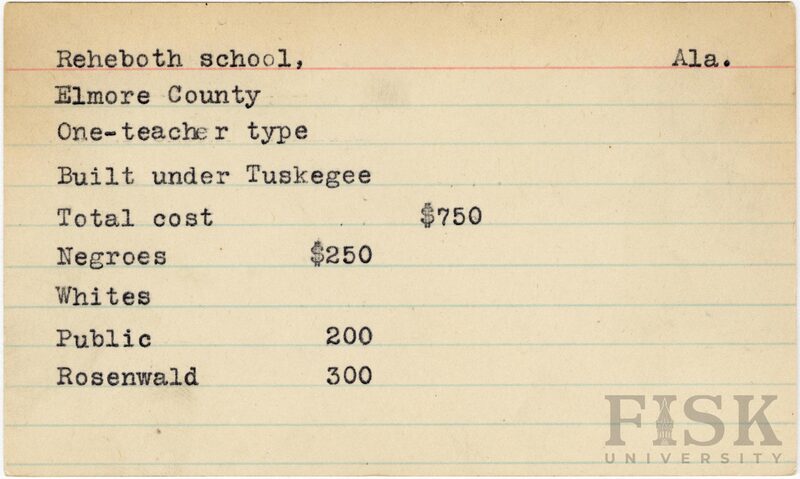 Reheboth school, Ala.
Elmore County
One-teacher type
Built under Tuskegee
Total cost $750
Negroes $250
Whites
Public 200
Rosenwald 300
FISK
UNIVERSITY